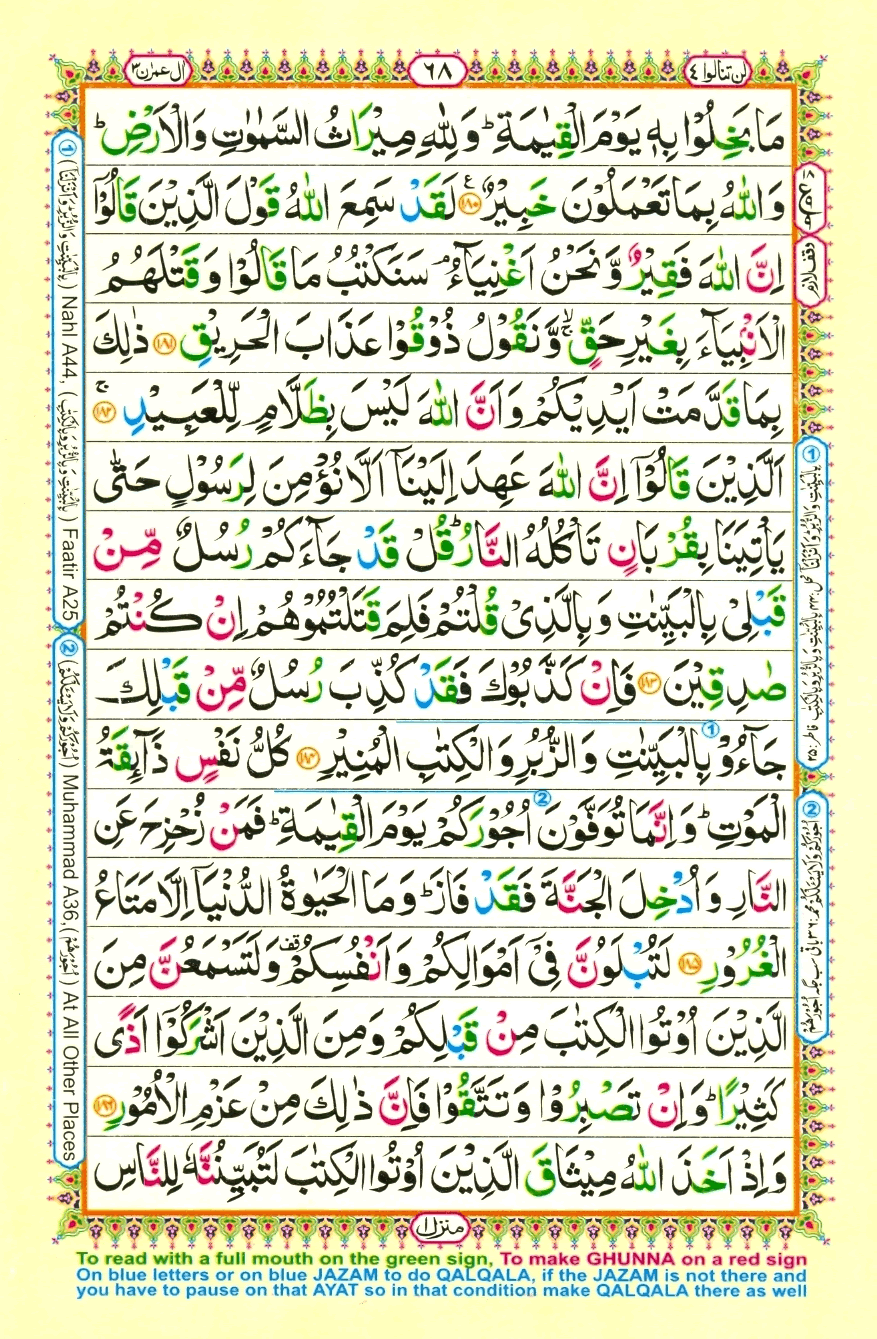 اٰل عمرٰن ٣
٦٨
لن تنالوا ٤
مَا بَخِلُوْا بِهٖ يَوْمَ الْقِيٰمَةِ ؕ وَلِلّٰهِ مِيْرَاثُ السَّمٰوٰتِ وَالْاَرْضِ ؕ
وَاللّٰهُ بِمَا تَعْمَلُوْنَ خَبِيْرٌ ﴿١٨٠﴾ لَقَدْ سَمِعَ اللّٰهُ قَوْلَ الَّذِيْنَ قَالُوْۤا
اِنَّ اللّٰهَ فَقِيْرٌ وَّنَحْنُ اَغْنِيَآءُ ۘ سَنَكْتُبُ مَا قَالُوْا وَقَتْلَهُمُ
الْاَنْۢبِيَآءَ بِغَيْرِ حَقٍّ ۙ وَّنَقُوْلُ ذُوْقُوْا عَذَابَ الْحَرِيْقِ ﴿١٨١﴾ ذٰلِكَ
بِمَا قَدَّمَتْ اَيْدِيْكُمْ وَاَنَّ اللّٰهَ لَيْسَ بِظَلَّامٍ لِّلْعَبِيْدِ ۚ ﴿١٨٢﴾
اَلَّذِيْنَ قَالُوْۤا اِنَّ اللّٰهَ عَهِدَ اِلَيْنَاۤ اَلَّا نُؤْمِنَ لِرَسُوْلٍ حَتّٰى
يَاْتِيَنَا بِقُرْبَانٍ تَاْكُلُهُ النَّارُ ؕ قُلْ قَدْ جَآءَكُمْ رُسُلٌ مِّنْ
قَبْلِيْ بِالْبَيِّنٰتِ وَبِالَّذِيْ قُلْتُمْ فَلِمَ قَتَلْتُمُوْهُمْ اِنْ كُنْتُمْ
صٰدِقِيْنَ ﴿١٨٣﴾ فَاِنْ كَذَّبُوْكَ فَقَدْ كُذِّبَ رُسُلٌ مِّنْ قَبْلِكَ
جَآءُوْ بِالْبَيِّنٰتِ وَالزُّبُرِ وَالْكِتٰبِ الْمُنِيْرِ ﴿١٨٤﴾ كُلُّ نَفْسٍ ذَآئِقَةُ
الْمَوْتِ ؕ وَاِنَّمَا تُوَفَّوْنَ اُجُوْرَكُمْ يَوْمَ الْقِيٰمَةِ ؕ فَمَنْ زُحْزِحَ عَنِ
النَّارِ وَاُدْخِلَ الْجَنَّةَ فَقَدْ فَازَ ؕ وَمَا الْحَيٰوةُ الدُّنْيَاۤ اِلَّا مَتَاعُ
الْغُرُوْرِ ﴿١٨٥﴾ لَتُبْلَوُنَّ فِيْۤ اَمْوَالِكُمْ وَاَنْفُسِكُمْ قف وَلَتَسْمَعُنَّ مِنَ
الَّذِيْنَ اُوْتُوا الْكِتٰبَ مِنْ قَبْلِكُمْ وَمِنَ الَّذِيْنَ اَشْرَكُوْۤا اَذًى
كَثِيْرًا ؕ وَاِنْ تَصْبِرُوْا وَتَتَّقُوْا فَاِنَّ ذٰلِكَ مِنْ عَزْمِ الْاُمُوْرِ ﴿١٨٦﴾
وَاِذْ اَخَذَ اللّٰهُ مِيْثَاقَ الَّذِيْنَ اُوْتُوا الْكِتٰبَ لَتُبَيِّنُنَّهٗ لِلنَّاسِ
منزل ١
وقف لازم
① (بِالْبَيِّنٰتِ وَالزُّبُرِ وَاَنْزَلْنَا) Nahl A44, (بِالْبَيِّنٰتِ وَبِالزُّبُرِ وَبِالْكِتٰبِ) Faatir A25
② (اُجُوْرَكُمْ وَلَا يَسْـَٔلْكُمْ) Muhammad A36, (اُجُوْرَهُمْ) At All Other Places
To read with a full mouth on the green sign, To make GHUNNA on a red sign
On blue letters or on blue JAZAM to do QALQALA, if the JAZAM is not there and
you have to pause on that AYAT so in that condition make QALQALA there as well